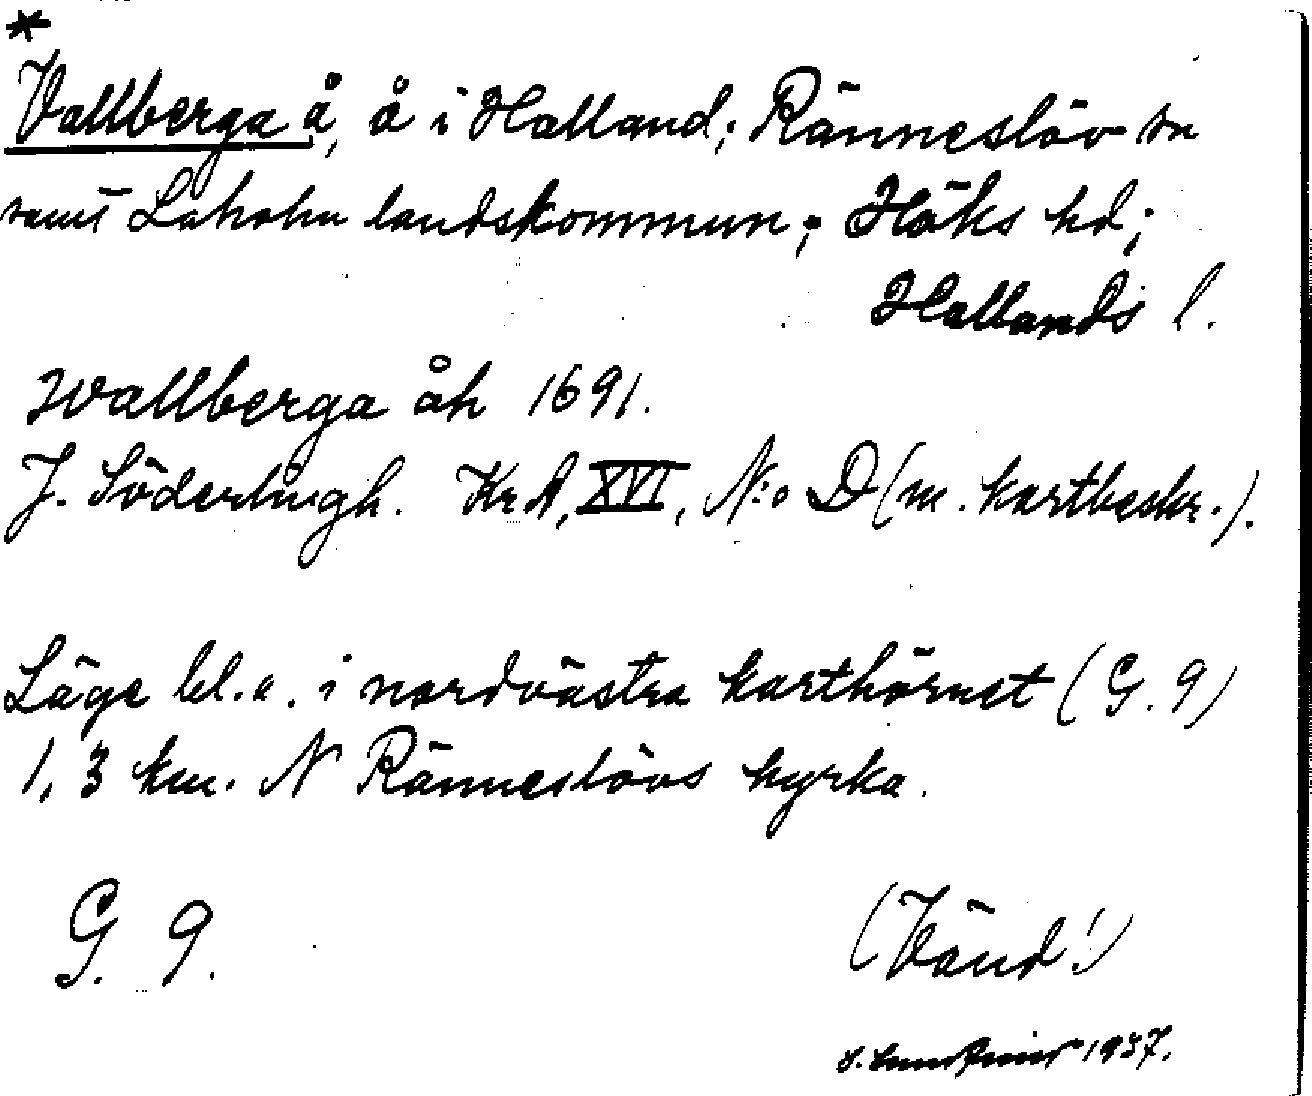 *
Vallberga å, å i Halland; Ränneslöv sn
samt Laholm landskommun; Höks hd;
Hallands l.
Wallberga åh 1691.
J. Söderlingh. KrA, XVI, N:o D (m. kartbeskr.).
Läge bl.a. i nordvästra karthörnet (G. 9)
1,3 km. N Ränneslövs kyrka.
G. 9.
(Vänd!)
1957.